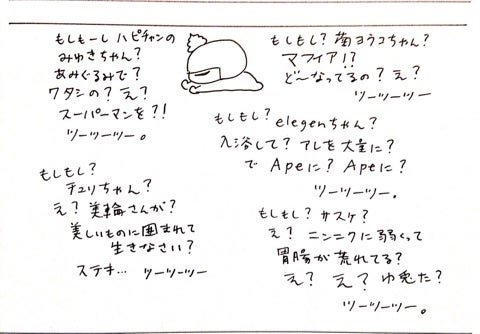 もしもーし ハピチャンの
みゆきちゃん?
あみぐるみで?
ワタシの? え?
スーパーマンを?!
ツーツーツー。
もしもし?
チュリちゃん?
え? 美輪さんが?
美しいものに囲まれて
生きなさい?
ステキ… ツーツーツー
もしもし? 菊ヨウコちゃん?
マフィア!?
ど〜なってるの? え?
ツーツーツー
もしもし? elegenちゃん?
入浴して? アレを大量に?
で Apeに? Apeに?
ツーツーツー.
もしもし? サスケ?
え? ニンニクに弱くって
胃腸が荒れてる?
え? え? ゆ兎た?
ツーツーツー。